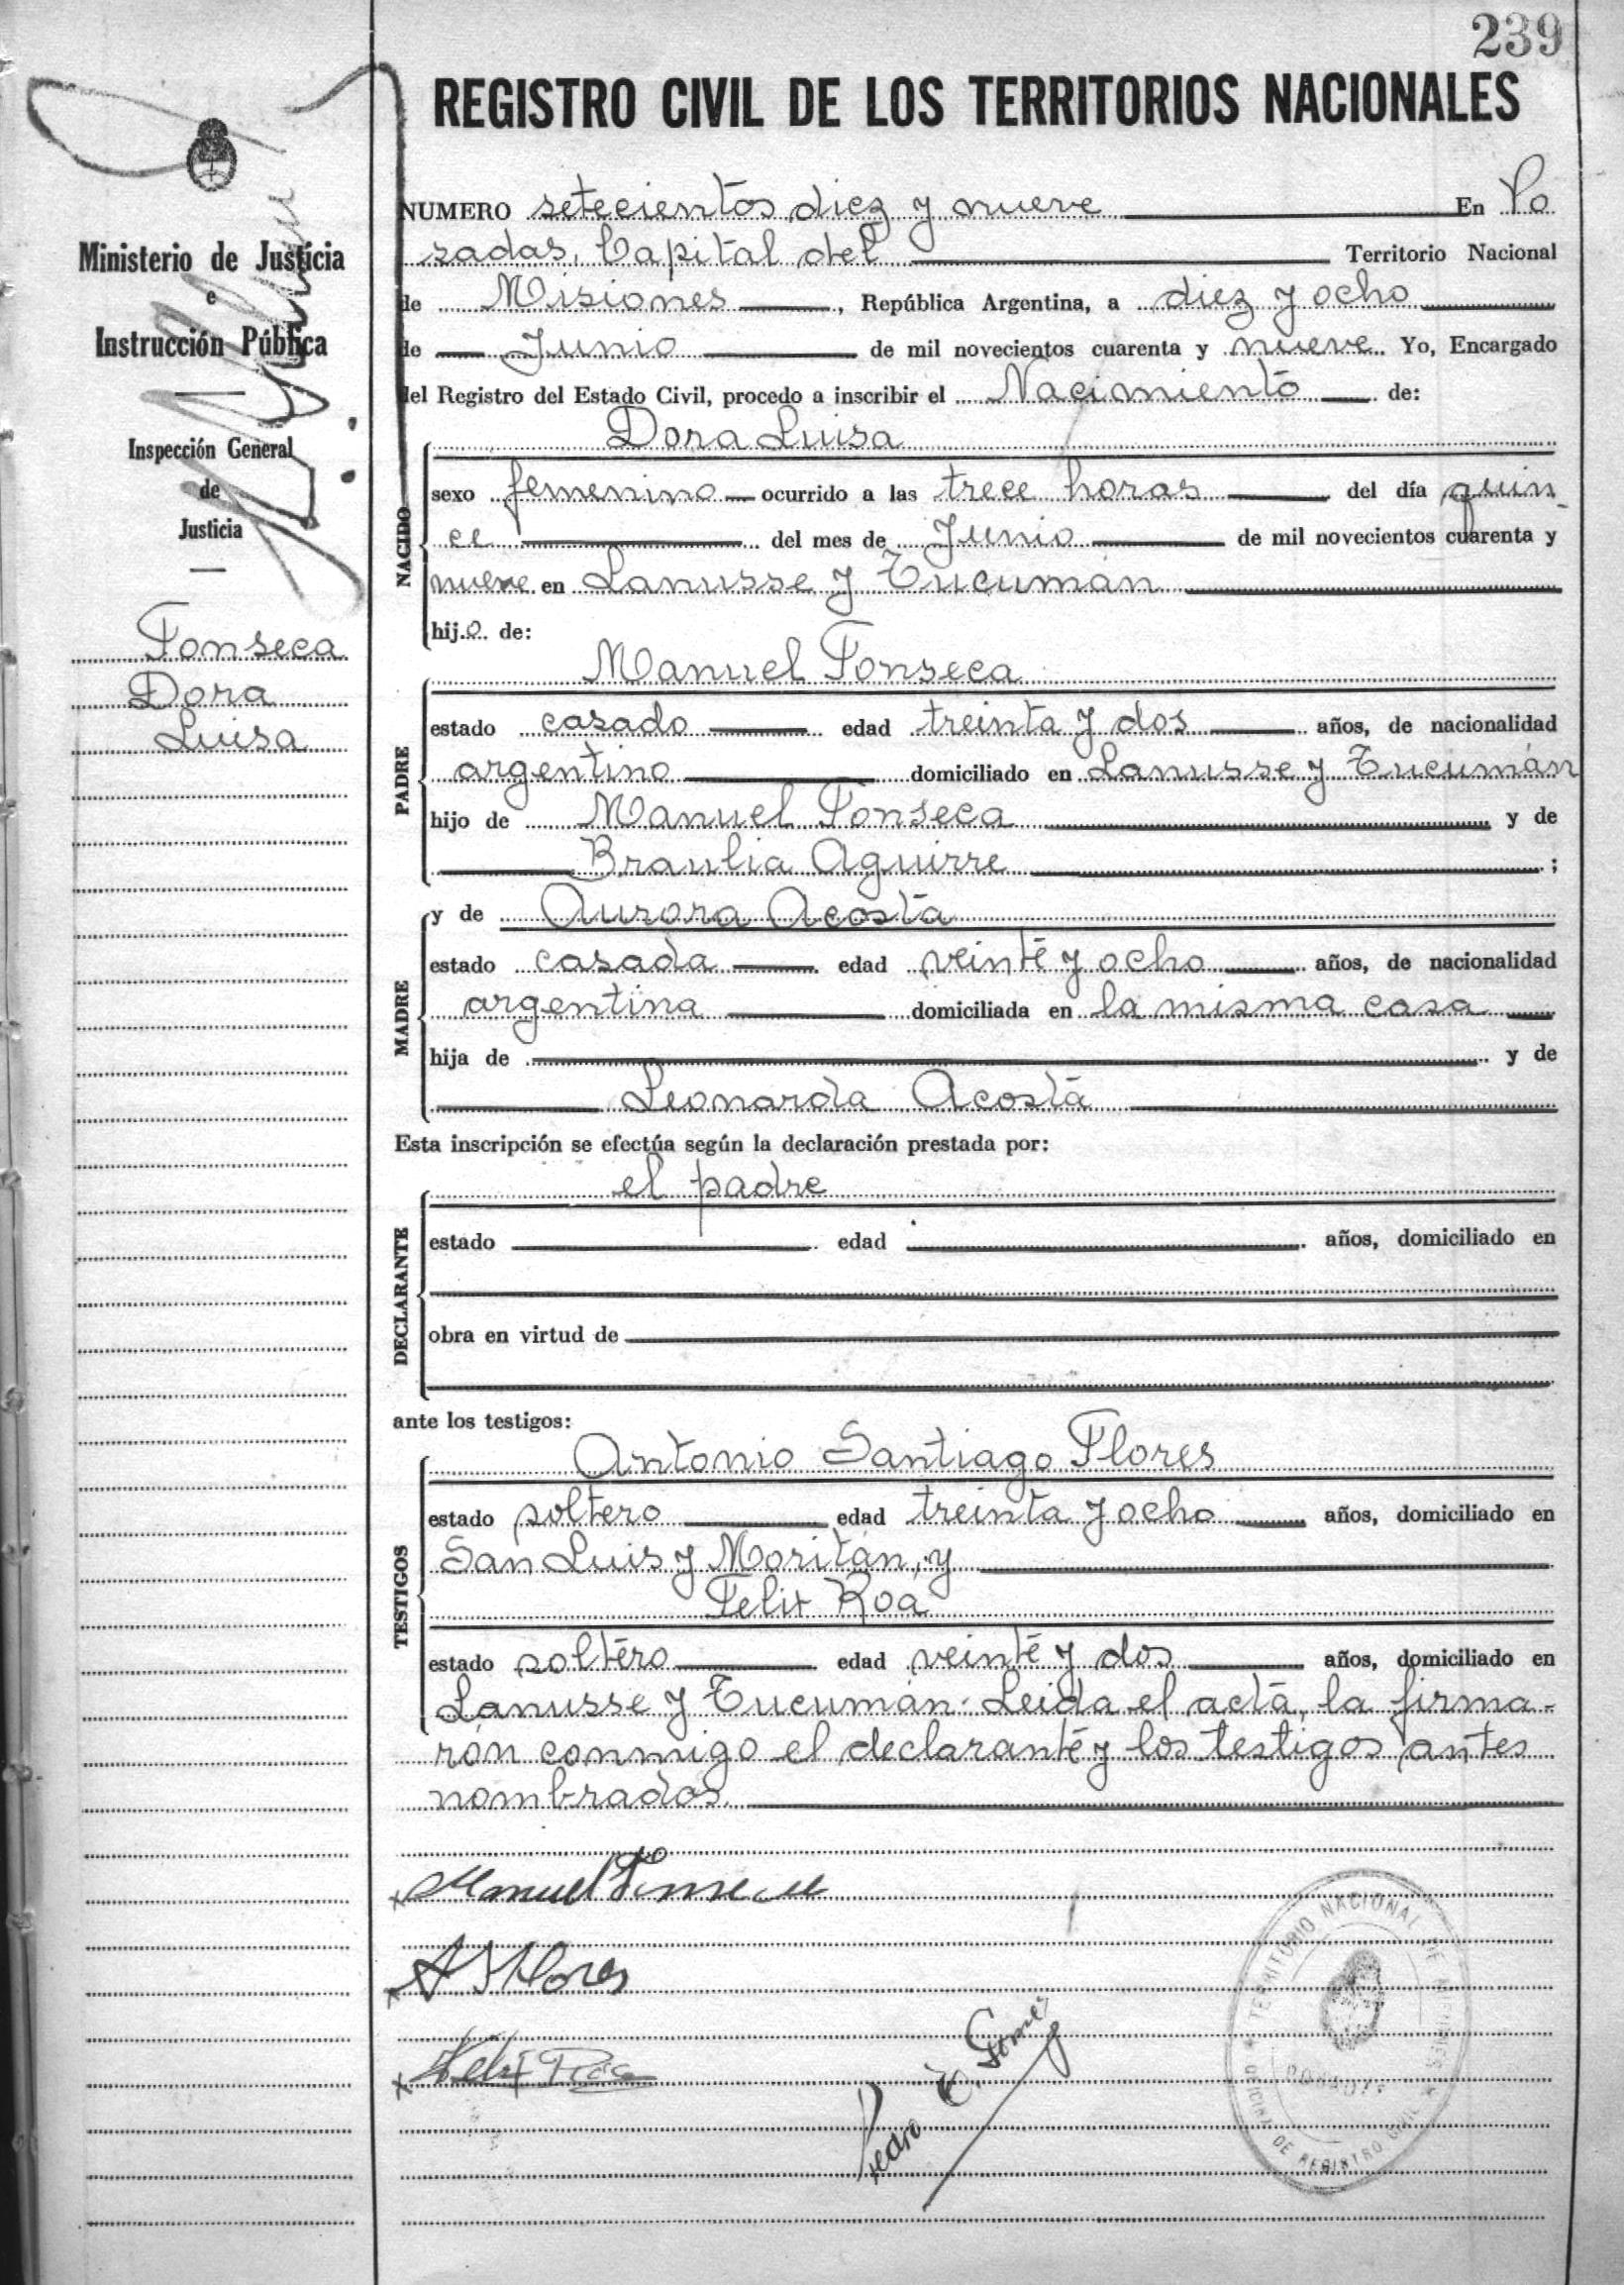 239
REGISTRO CIVIL DE LOS TERRITORIOS NACIONALES
Ministerio de Justicia
e
Instrucción Pública
Inspección General
de
Justicia
Fonseca
Dora
Luisa
NUMERO setecientos diez y nueve En Po
sadas, Capital del Territorio Nacional
de Misiones, República Argentina, a diez y ocho
de Junio de mil novecientos cuarenta y nueve. Yo, Encargado
del Registro del Estado Civil, procedo a inscribir el Nacimiento de:
NACIDO
Dora Luisa
sexo femenino ocurrido a las trece horas del día quin
ce del mes de Junio de mil novecientos cuarenta y
nueve en Lanusse y Tucumán
hijo de:
PADRE
Manuel Fonseca
estado casado edad treinta y dos años, de nacionalidad
argentino domiciliado en Lanusse y Tucumán
hijo de Manuel Fonseca y de
Braulia Aguirre ;
MADRE
y de Aurora Acosta
estado casada edad veinte y ocho años, de nacionalidad
argentina domiciliada en la misma casa
hija de y de
Leonarda Acosta
Esta inscripción se efectúa según la declaración prestada por:
DECLARANTE
el padre
estado edad años, domiciliado en
obra en virtud de
ante los testigos:
TESTIGOS
Antonio Santiago Flores
estado soltero edad treinta y ocho años, domiciliado en
San Luis y Moritán, y
Felix Roa
estado soltero edad veinte y dos años, domiciliado en
Lanusse y Tucumán. Leida el acta, la firma-
ron conmigo el declarante y los testigos antes
nombrados.
x Manuel Fonseca
x A S Flores
x Felix Roa
Pedro E. Gomez
TERRITORIO NACIONAL DE MISIONES
POSADAS
OFICINA DE REGISTRO CIVIL